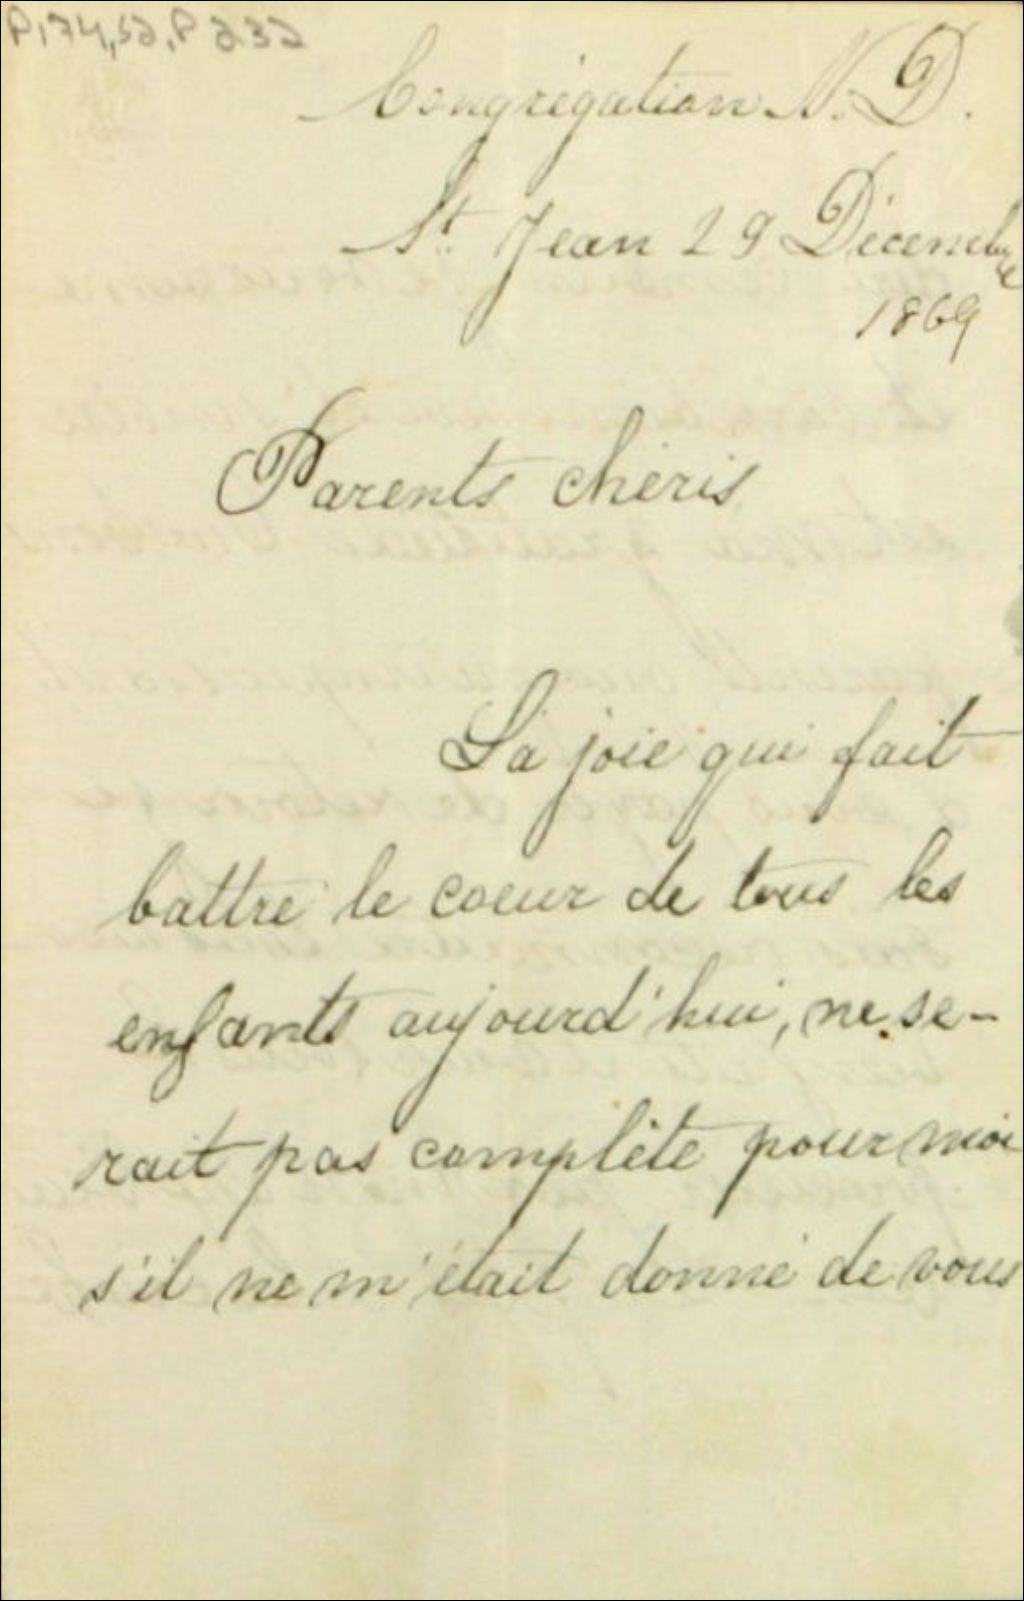 P174,S2,P232
Congrégation N. D.
St Jean 29 Décembre
1869
Parents chéris
La joie qui fait
battre le coeur de tous les
enfants aujourd'hui, ne se-
rait pas complète pour moi
s'il ne m'était donné de vous